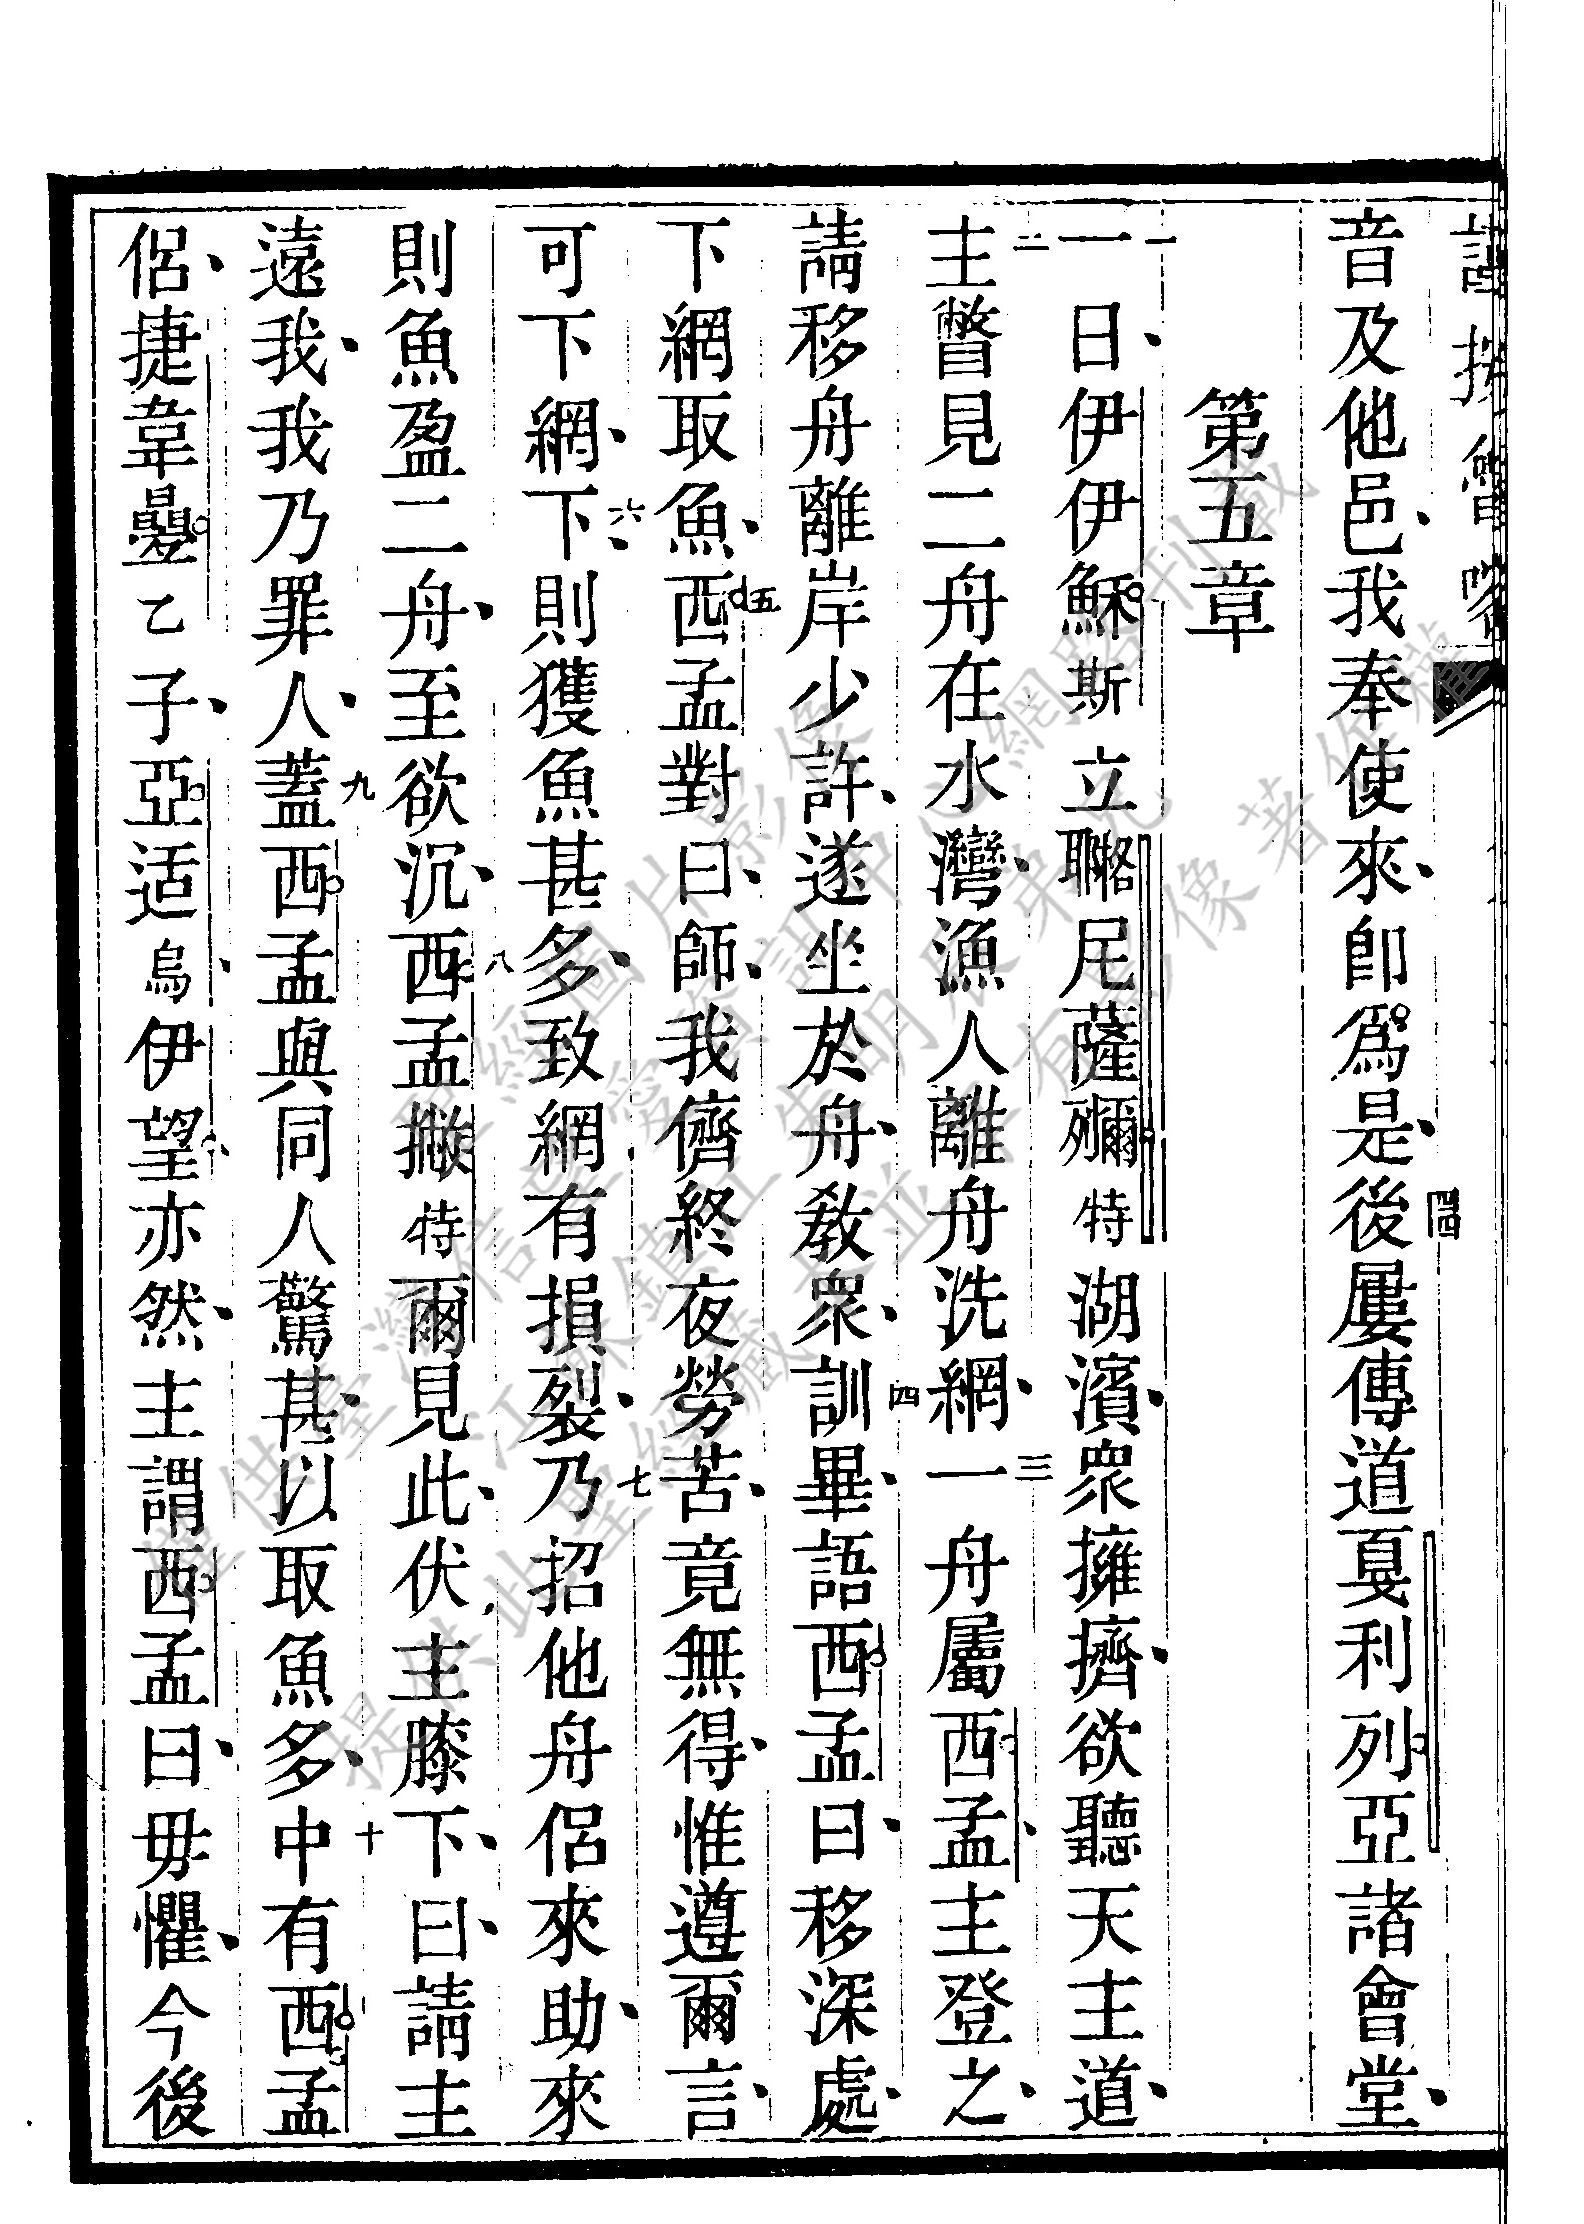 音及他邑、我奉使來、卽爲是、四四後屢傳道戛利列亞諸會堂、
第五章
一一日、伊伊穌斯立聯尼薩特湖濱、衆擁擠、欲聽天主道、
二主瞥見二舟在水灣、漁人離舟洗網、三一舟屬西孟、主登之、
請移舟離岸少許、遂坐於舟、敎衆、四訓畢、語西孟曰、移深處、
下網取魚、五西孟對曰、師、我儕終夜勞苦、竟無得、惟遵爾言、
可下網、六下、則獲魚甚多、致網有損裂、七乃招他舟侶來助、來
則魚盈二舟、至欲沉、八西孟撇特爾見此、伏主膝下、曰、請主
遠我、我乃罪人、九蓋西孟與同人驚甚、以取魚多、十中有西孟
侶、捷韋乙子、亞适烏、伊望亦然、主謂西孟曰、毋懼、今後